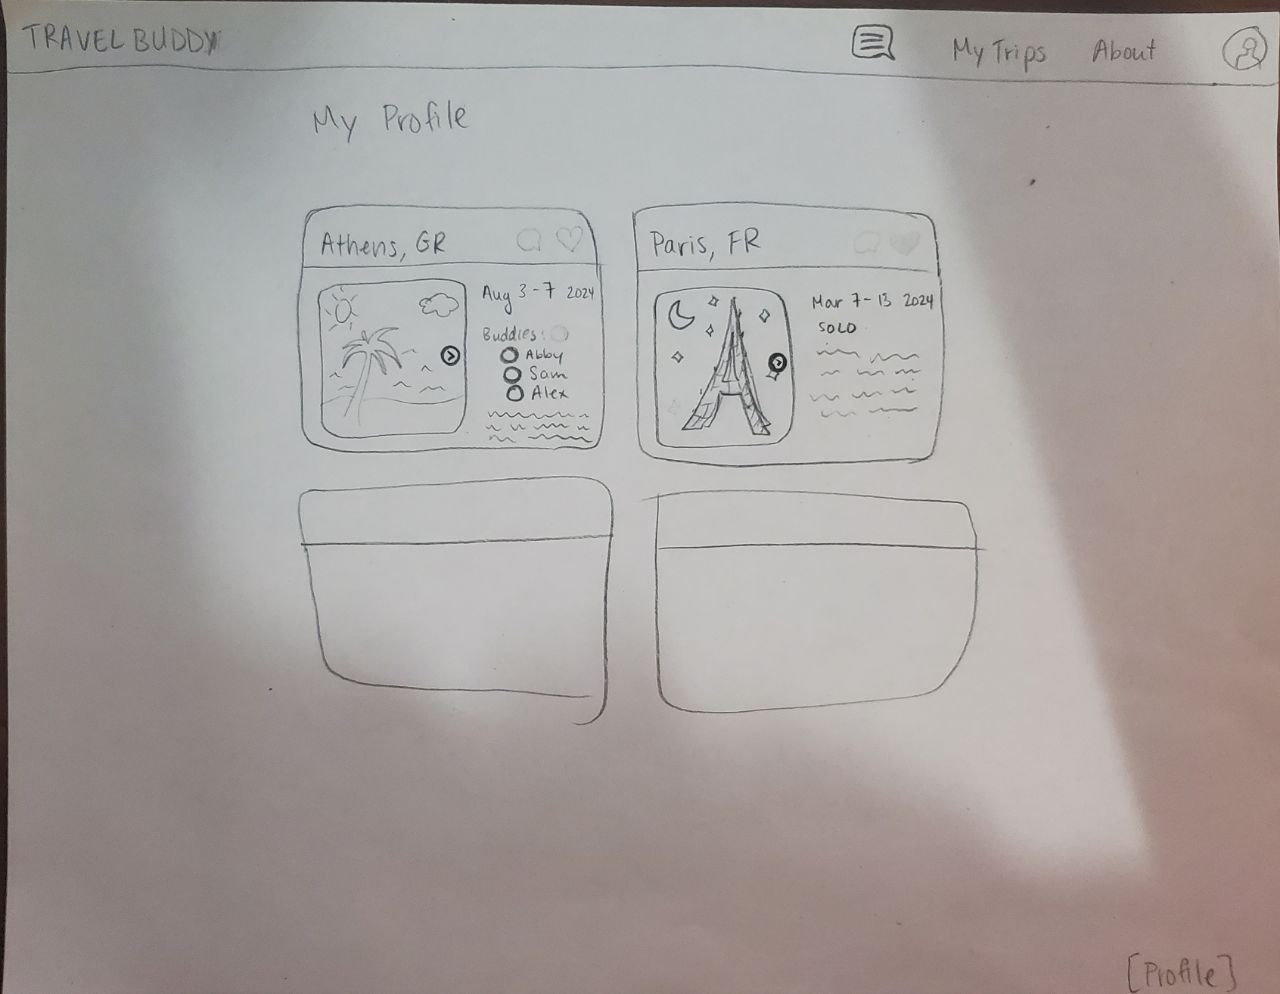 TRAVEL BUDDY
My Trips
About
My Profile
Athens, GR
Aug 3-7 2024
Buddies:
Abby
Sam
Alex
Paris, FR
Mar 7-13 2024
SOLO
[Profile]